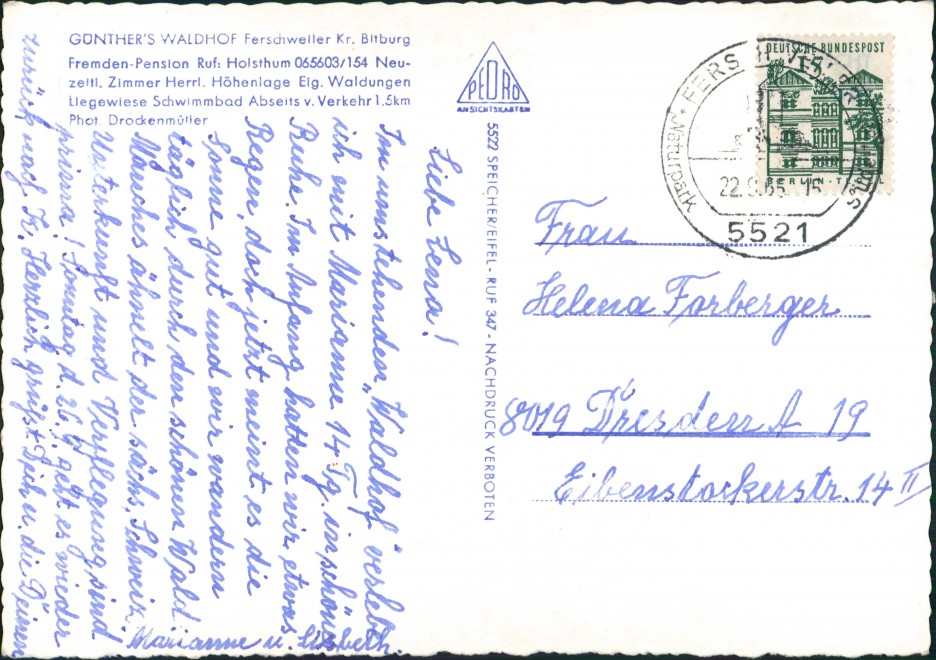 GÜNTHER'S WALDHOF Ferschweiler Kr. Bitburg
Fremden-Pension Ruf: Holsthum 065603/154 Neu-
zeitl. Zimmer Herrl. Höhenlage Eig. Waldungen
Liegewiese Schwimmbad Abseits v. Verkehr 1.5km
Phot. Drockenmüller
Liebe Lena!
Im umstehenden „Waldhof" verlebe
ich mit Marianne 14 Tg. in schöner
Ruhe. Im Anfang hatten wir etwas
Regen, doch jetzt meint es die
Sonne gut und wir wandern
täglich durch den schönen Wald.
Manches ähnelt der sächs. Schweiz.
Unterkunft und Verpflegung sind
prima! Sonntag d. 26.9. geht es wieder
zurück nach Fr. Herzlich grüßt Dich u. die Deinen
Marianne u. Lisbeth.
PEDRO
ANSICHTSKARTEN
5522 SPEICHER/EIFEL - RUF 347 - NACHDRUCK VERBOTEN
DEUTSCHE BUNDESPOST
BERLIN-TEGEL
Naturpark
22.9.65
5521
Frau
Helena Forberger
8019 Dresden A 19
Eibenstockerstr. 14 II